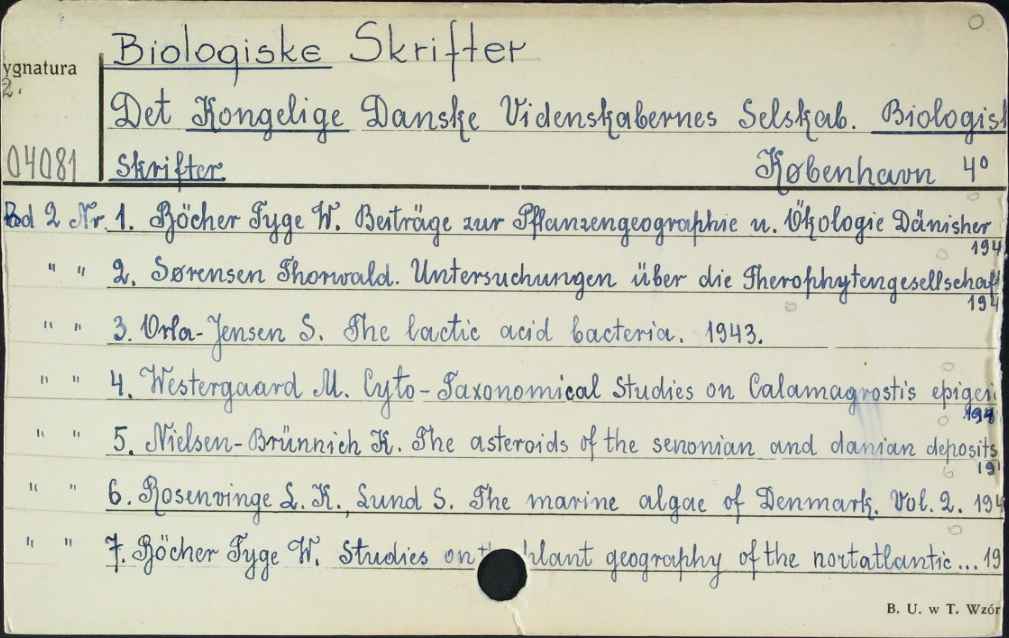 Biologiske Skrifter
ygnatura
2.
Det Kongelige Danske Videnskabernes Selskab. Biologisk
04081 Skrifter. København 4º
Bd 2 Nr. 1. Böcher Tyge W. Beiträge zur Pflanzengeographie u. Ökologie Dänisher
194
" " 2. Sørensen Thorwald. Untersuchungen über die Therophytengesellschaf
194
" " 3. Orla-Jensen S. The lactic acid bacteria. 1943.
" " 4. Westergaard M. Cyto-Taxonomical Studies on Calamagrostis epigei
194
" " 5. Nielsen-Brünnich K. The asteroids of the senonian and danian deposits
19
" " 6. Rosenvinge L. K., Lund S. The marine algae of Denmark. Vol. 2. 194
" " 7. Böcher Tyge W. Studies on plant geography of the nortatlantic... 19
B. U. w T. Wzór